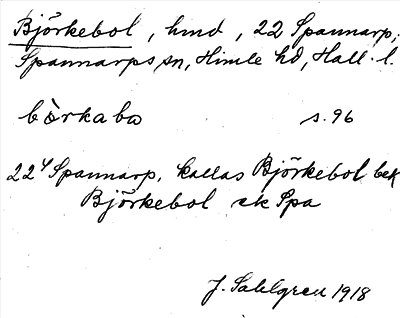 Björkebol, hmd, 22 Spannarp,
Spannarps sn, Himle hd, Hall. l.
bòrkabo s. 96
22⁴ Spannarp, kallas Björkebol bek
Björkebol ek Spa
J. Sahlgren 1918